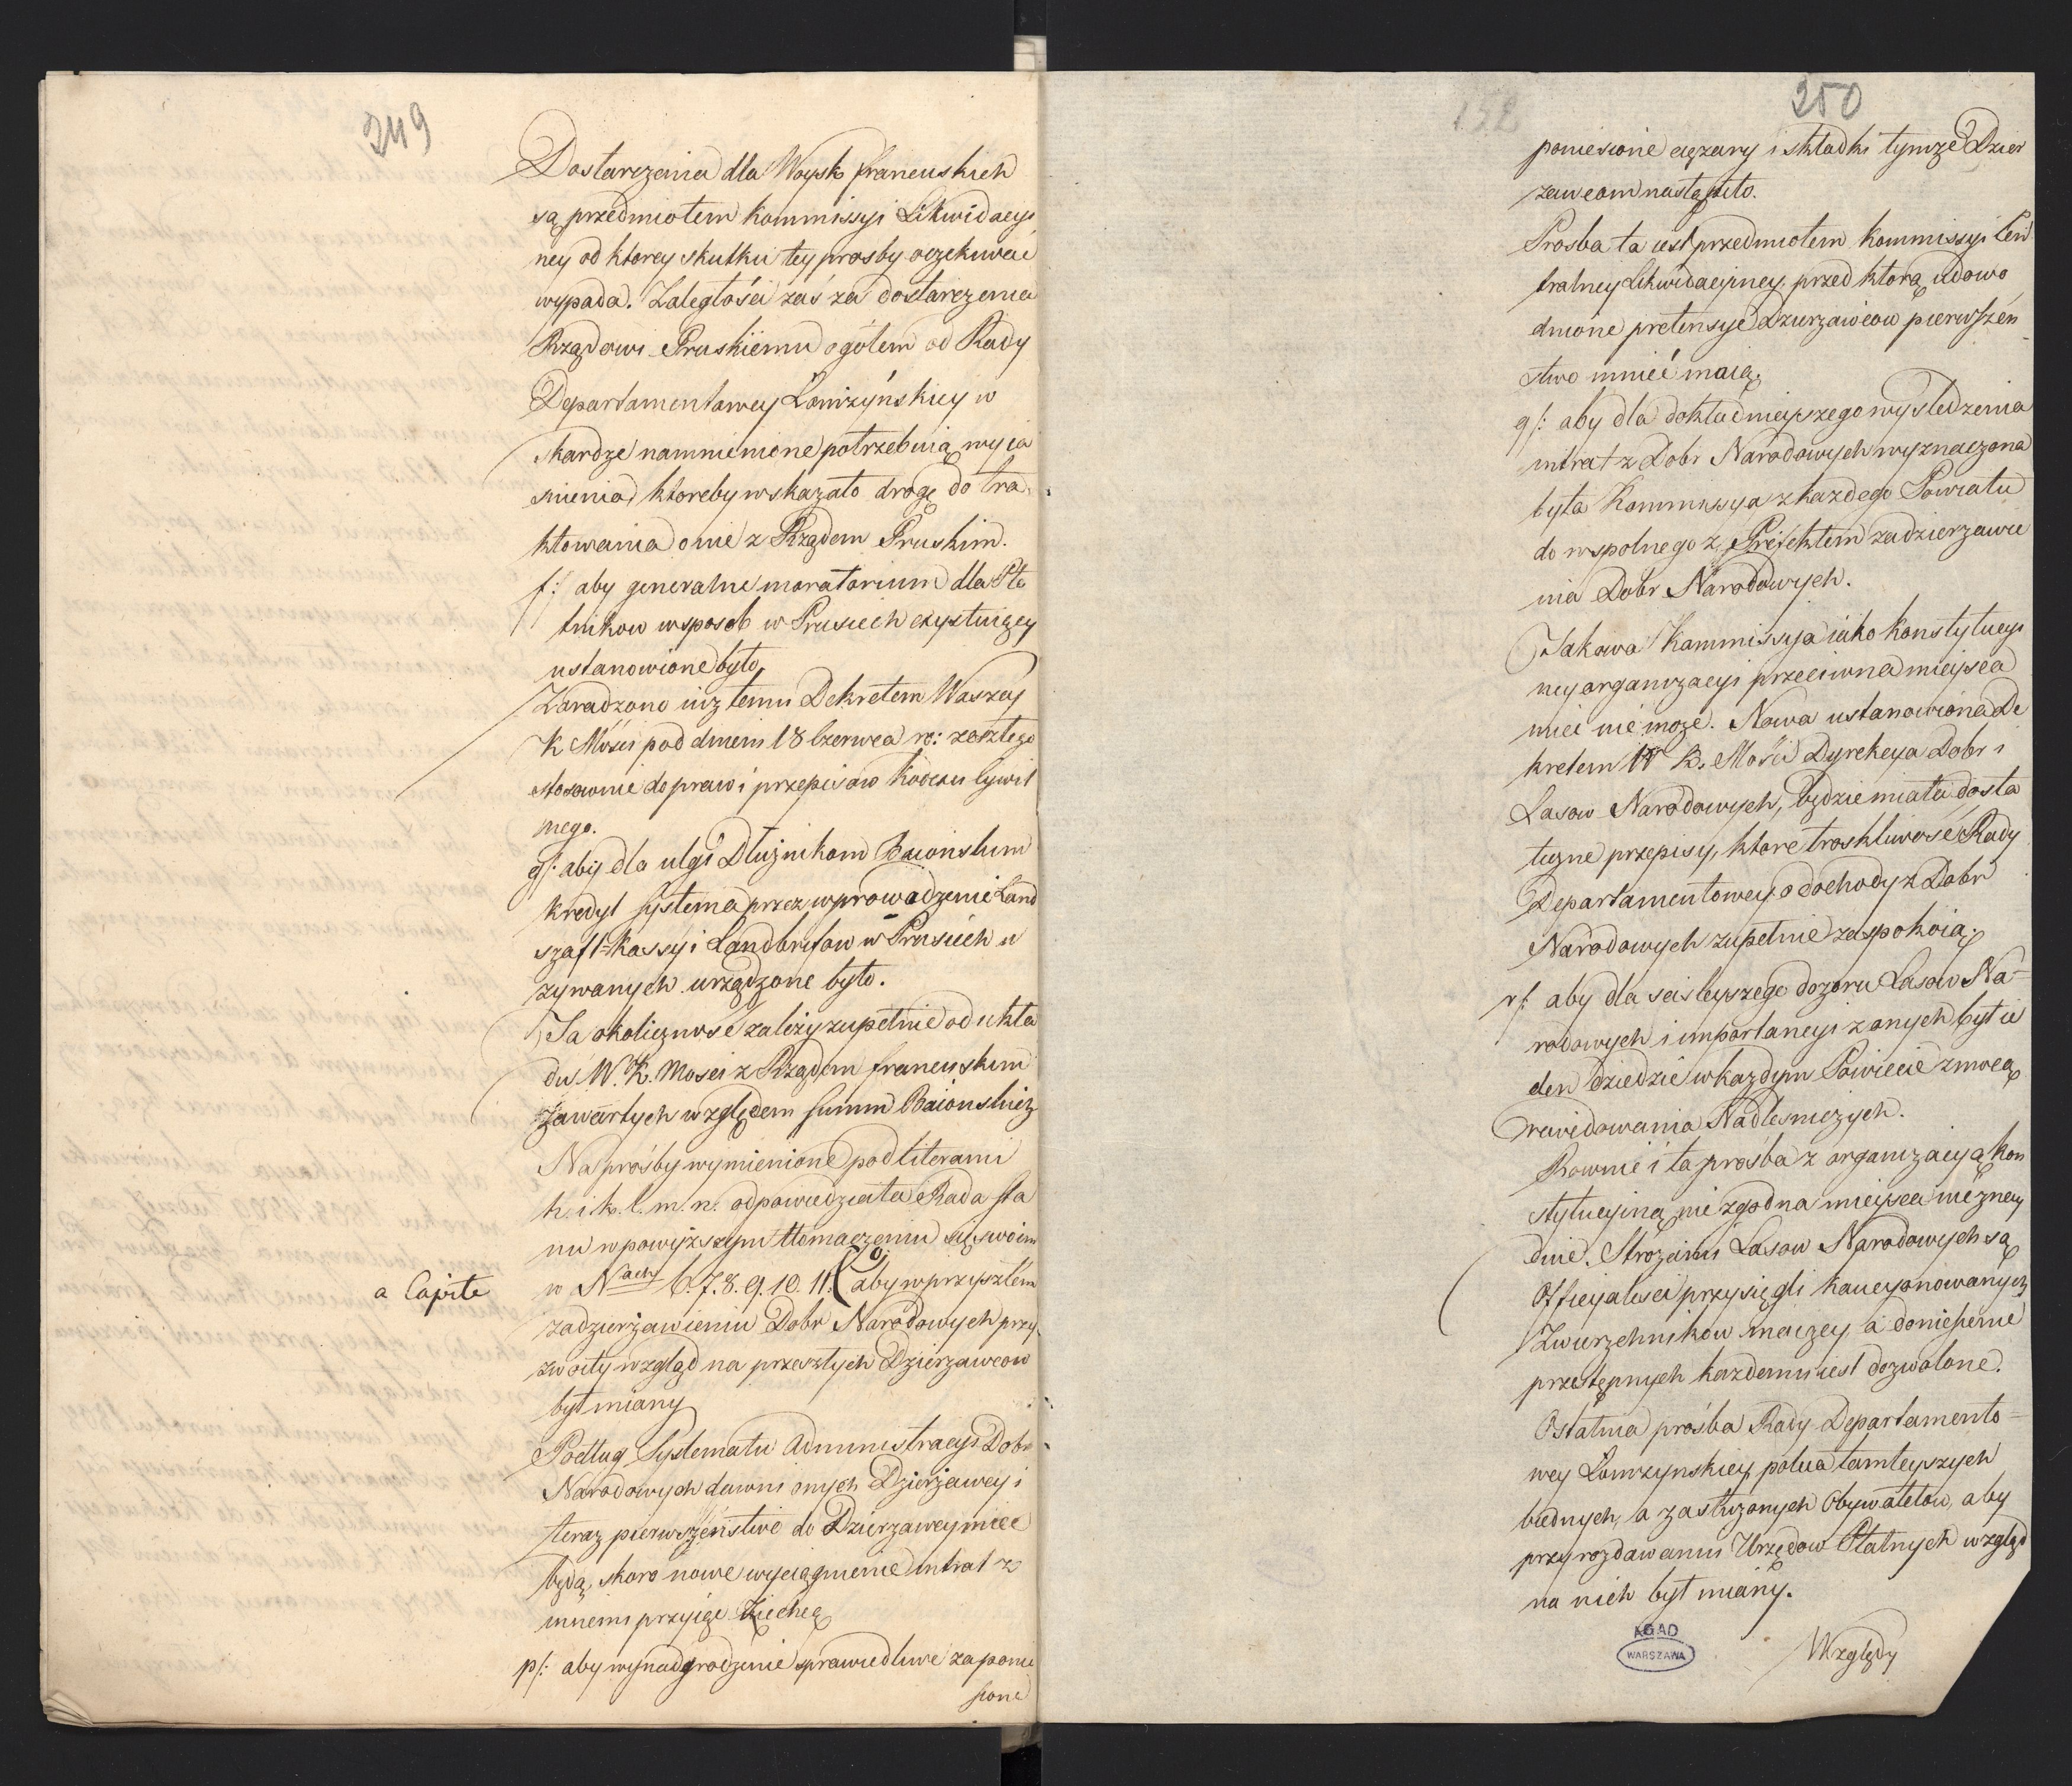 249
Dostarczenia dla Woysk francuskich
są przedmiotem Kommissyi Likwidacyi
ney od ktorey skutku tey prosby oczekiwać
wypada. Zaległości zaś za dostarczenia
Rządowi Pruskiemu ogółem od Rady
Departamentowey Łomżyńskiey w
skardze namienione potrzebuią wyia
snienia, ktoreby wskazało drogę do tra„
ktowania o nie z Rządem Pruskim.
f/: aby generalne moratorium dla Pła
tnikow w sposob w Prusiech exystuiący
ustanowione było,
Zaradzono iuż temu Dekretem Waszey
K Mości pod dniem 18 Czerwca r: zeszłego
stosownie do praw i przepisow Kodexu Cywil
nego.
g/: aby dla ulgi Dłużnikom Baionskim
kredyt systema przez wprowadzenie Land
szaft=Kassy i Landbrifow w Prusiech u
zywanych urządzone było.
Ta okoliczność zależy zupełnie od ukła
du W. K. Mosci z Rządem francuskim
zawartych względem summ Baionskich
Na prośby wymienione pod literami
h. i. k. l. m. n. odpowiedziała Rada sta
nu w powyższym tłomaczeniu się swoim
a Capite
w Nach 6. 7. 8. 9. 10. 11. ( o/: aby w przyszłém
zadzierżawieniu Dobr Narodowych przy
zwoity wzgląd na przeszłych Dzierżawcow
był miany
Podług Systematu Administracyi Dobr
Narodowych dawni onych Dzierżawcy i
teraz pierwszeństwo do Dzierżawy mieć
będą, skoro nowe wyciągnienie intrat z
innemi przyiąć zechcą
p/: aby wynadgrodzenie sprawiedliwe za ponie
sione
152
250
poniesione ciężary i składki tymże Dzier
zawcom nastąpiło.
Prosba ta iest przedmiotem Kommissyi Cen
tralney Likwidacyiney, przed ktorą udowo
dnione pretensye Dzierzawcow pierwszeń
stwo mnieć maią.
q/: aby dla dokładnieyszego wysledzenia
intrat z Dobr Narodowych wyznaczona
była Kommissya z każdego Powiatu
do wspolnego z Prefektem zadzierzawie
nia Dobr Narodowych.
Takowa Kommissya iako Konstytucyi
ney organizacyi przeciwna mieysca
mieć nie moze. Nowa ustanowiona De
kretem W K. Mości Dyrekcya Dobr i
Lasow Narodowych, będzie miała dosta
teczne przepisy, ktore troskliwość Rady
Departamentowey o dochody z Dobr
Narodowych zupełnie zaspokoią.
r/: aby dla scisleyszego dozoru Lasow Na=
rodowych i importancyi z onych był ie
den Dziedzic w każdym Powiecie z mocą
rewidowania Nadlesniczych.
Rownie i ta prosba z organizacyą Kon
stytucyiną nie zgodna mieysca nieznay
duie. Strożami Lasow Narodowych są
Officyalisci przysięgli kaucyonowanych
Zwierzchnikow maiący, a doniesienie
przestępnych każdemu iest dozwolone.
Ostatnia prośba Rady Departamento=
wey Łomzynskiey poleca tamteyszych
biednych, a zasłużonych Obywatelow, aby
przy rozdawaniu Urzędow Płatnych wzgląd
na nich był miany.
AGAD
WARSZAWA
Względy